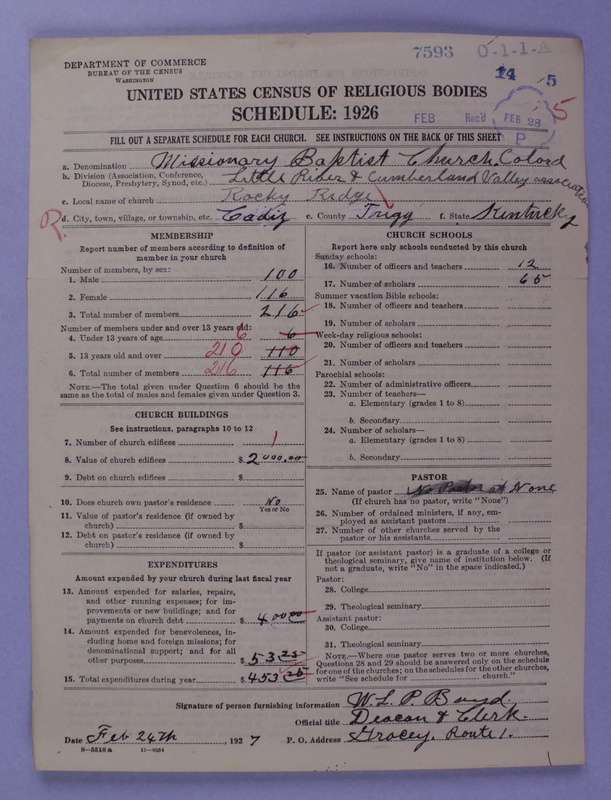 7593 0-1-1-B
DEPARTMENT OF COMMERCE
BUREAU OF THE CENSUS
WASHINGTON
14 5
UNITED STATES CENSUS OF RELIGIOUS BODIES
SCHEDULE: 1926
FEB Rec'd FEB 28 P 5
FILL OUT A SEPARATE SCHEDULE FOR EACH CHURCH. SEE INSTRUCTIONS ON THE BACK OF THIS SHEET
a. Denomination Missionary Baptist Church, Colord
b. Division (Association, Conference, Diocese, Presbytery, Synod, etc.) Little River & Cumberland Valley association
c. Local name of church Rocky Ridge
R. d. City, town, village, or township, etc. Cadiz e. County Trigg f. State Kentucky
MEMBERSHIP
Report number of members according to definition of
member in your church
Number of members, by sex:
1. Male 100
2. Female 116
3. Total number of members 216
Number of members under and over 13 years old:
4. Under 13 years of age 6 6
5. 13 years old and over 210 110
6. Total number of members 216 116
NOTE.—The total given under Question 6 should be the
same as the total of males and females given under Question 3.
CHURCH BUILDINGS
See instructions, paragraphs 10 to 12
7. Number of church edifices 1
8. Value of church edifices $ 2000.00
9. Debt on church edifices $
10. Does church own pastor's residence No
Yes or No
11. Value of pastor's residence (if owned by
church) $
12. Debt on pastor's residence (if owned by
church) $
EXPENDITURES
Amount expended by your church during last fiscal year
13. Amount expended for salaries, repairs,
and other running expenses; for im-
provements or new buildings; and for
payments on church debt $ 400.00
14. Amount expended for benevolences, in-
cluding home and foreign missions; for
denominational support; and for all
other purposes $ 53.25
15. Total expenditures during year $ 453.25
CHURCH SCHOOLS
Report here only schools conducted by this church
Sunday schools:
16. Number of officers and teachers 12
17. Number of scholars 65
Summer vacation Bible schools:
18. Number of officers and teachers
19. Number of scholars
Week-day religious schools:
20. Number of officers and teachers
21. Number of scholars
Parochial schools:
22. Number of administrative officers
23. Number of teachers—
a. Elementary (grades 1 to 8)
b. Secondary
24. Number of scholars—
a. Elementary (grades 1 to 8)
b. Secondary
PASTOR
25. Name of pastor No Pastor at None
(If church has no pastor, write "None")
26. Number of ordained ministers, if any, em-
ployed as assistant pastors
27. Number of other churches served by the
pastor or his assistants
If pastor (or assistant pastor) is a graduate of a college or
theological seminary, give name of institution below. (If
not a graduate, write "No" in the space indicated.)
Pastor:
28. College
29. Theological seminary
Assistant pastor:
30. College
31. Theological seminary
NOTE.—Where one pastor serves two or more churches,
Questions 28 and 29 should be answered only on the schedule
for one of the churches; on the schedules for the other churches,
write "See schedule for church."
Signature of person furnishing information W. L. P. Boyd
Official title Deacon & Clerk.
Date Feb 24th, 1927 P. O. Address Gracey, Route 1.
8-5518 a 11-9054